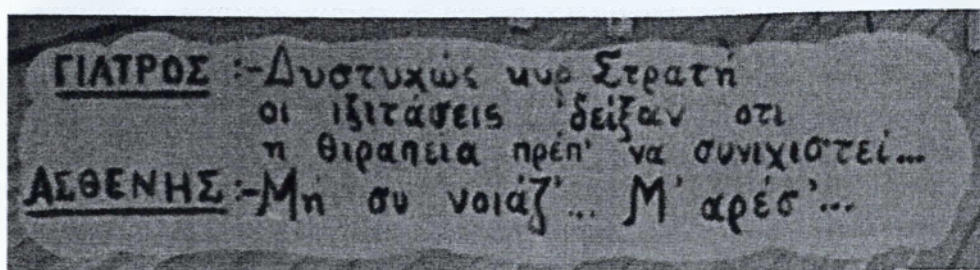 ΓΙΑΤΡΟΣ :-Δυστυχώς κυρ Στρατή
οι ιξιτάσεις 'δείξαν οτι
η θιραπεια πρέπ' να συνιχιστεί...
ΑΣΘΕΝΗΣ :-Μη συ νοιάζ'... Μ' αρέσ'...